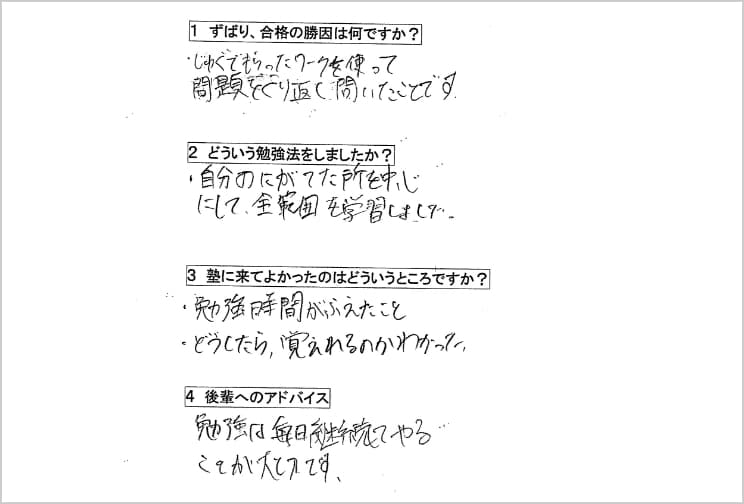 1 ずばり、合格の勝因は何ですか？
・じゅくでもらったワークを使って
問題をくり返し問いたことです
2 どういう勉強法をしましたか？
・自分のにがてた所を中心
にして、全範囲を学習しました。
3 塾に来てよかったのはどういうところですか？
・勉強時間がふえたこと
・どうしたら、覚えれるのかわかった。
4 後輩へのアドバイス
勉強は毎日継続してやる
ことが大切です、